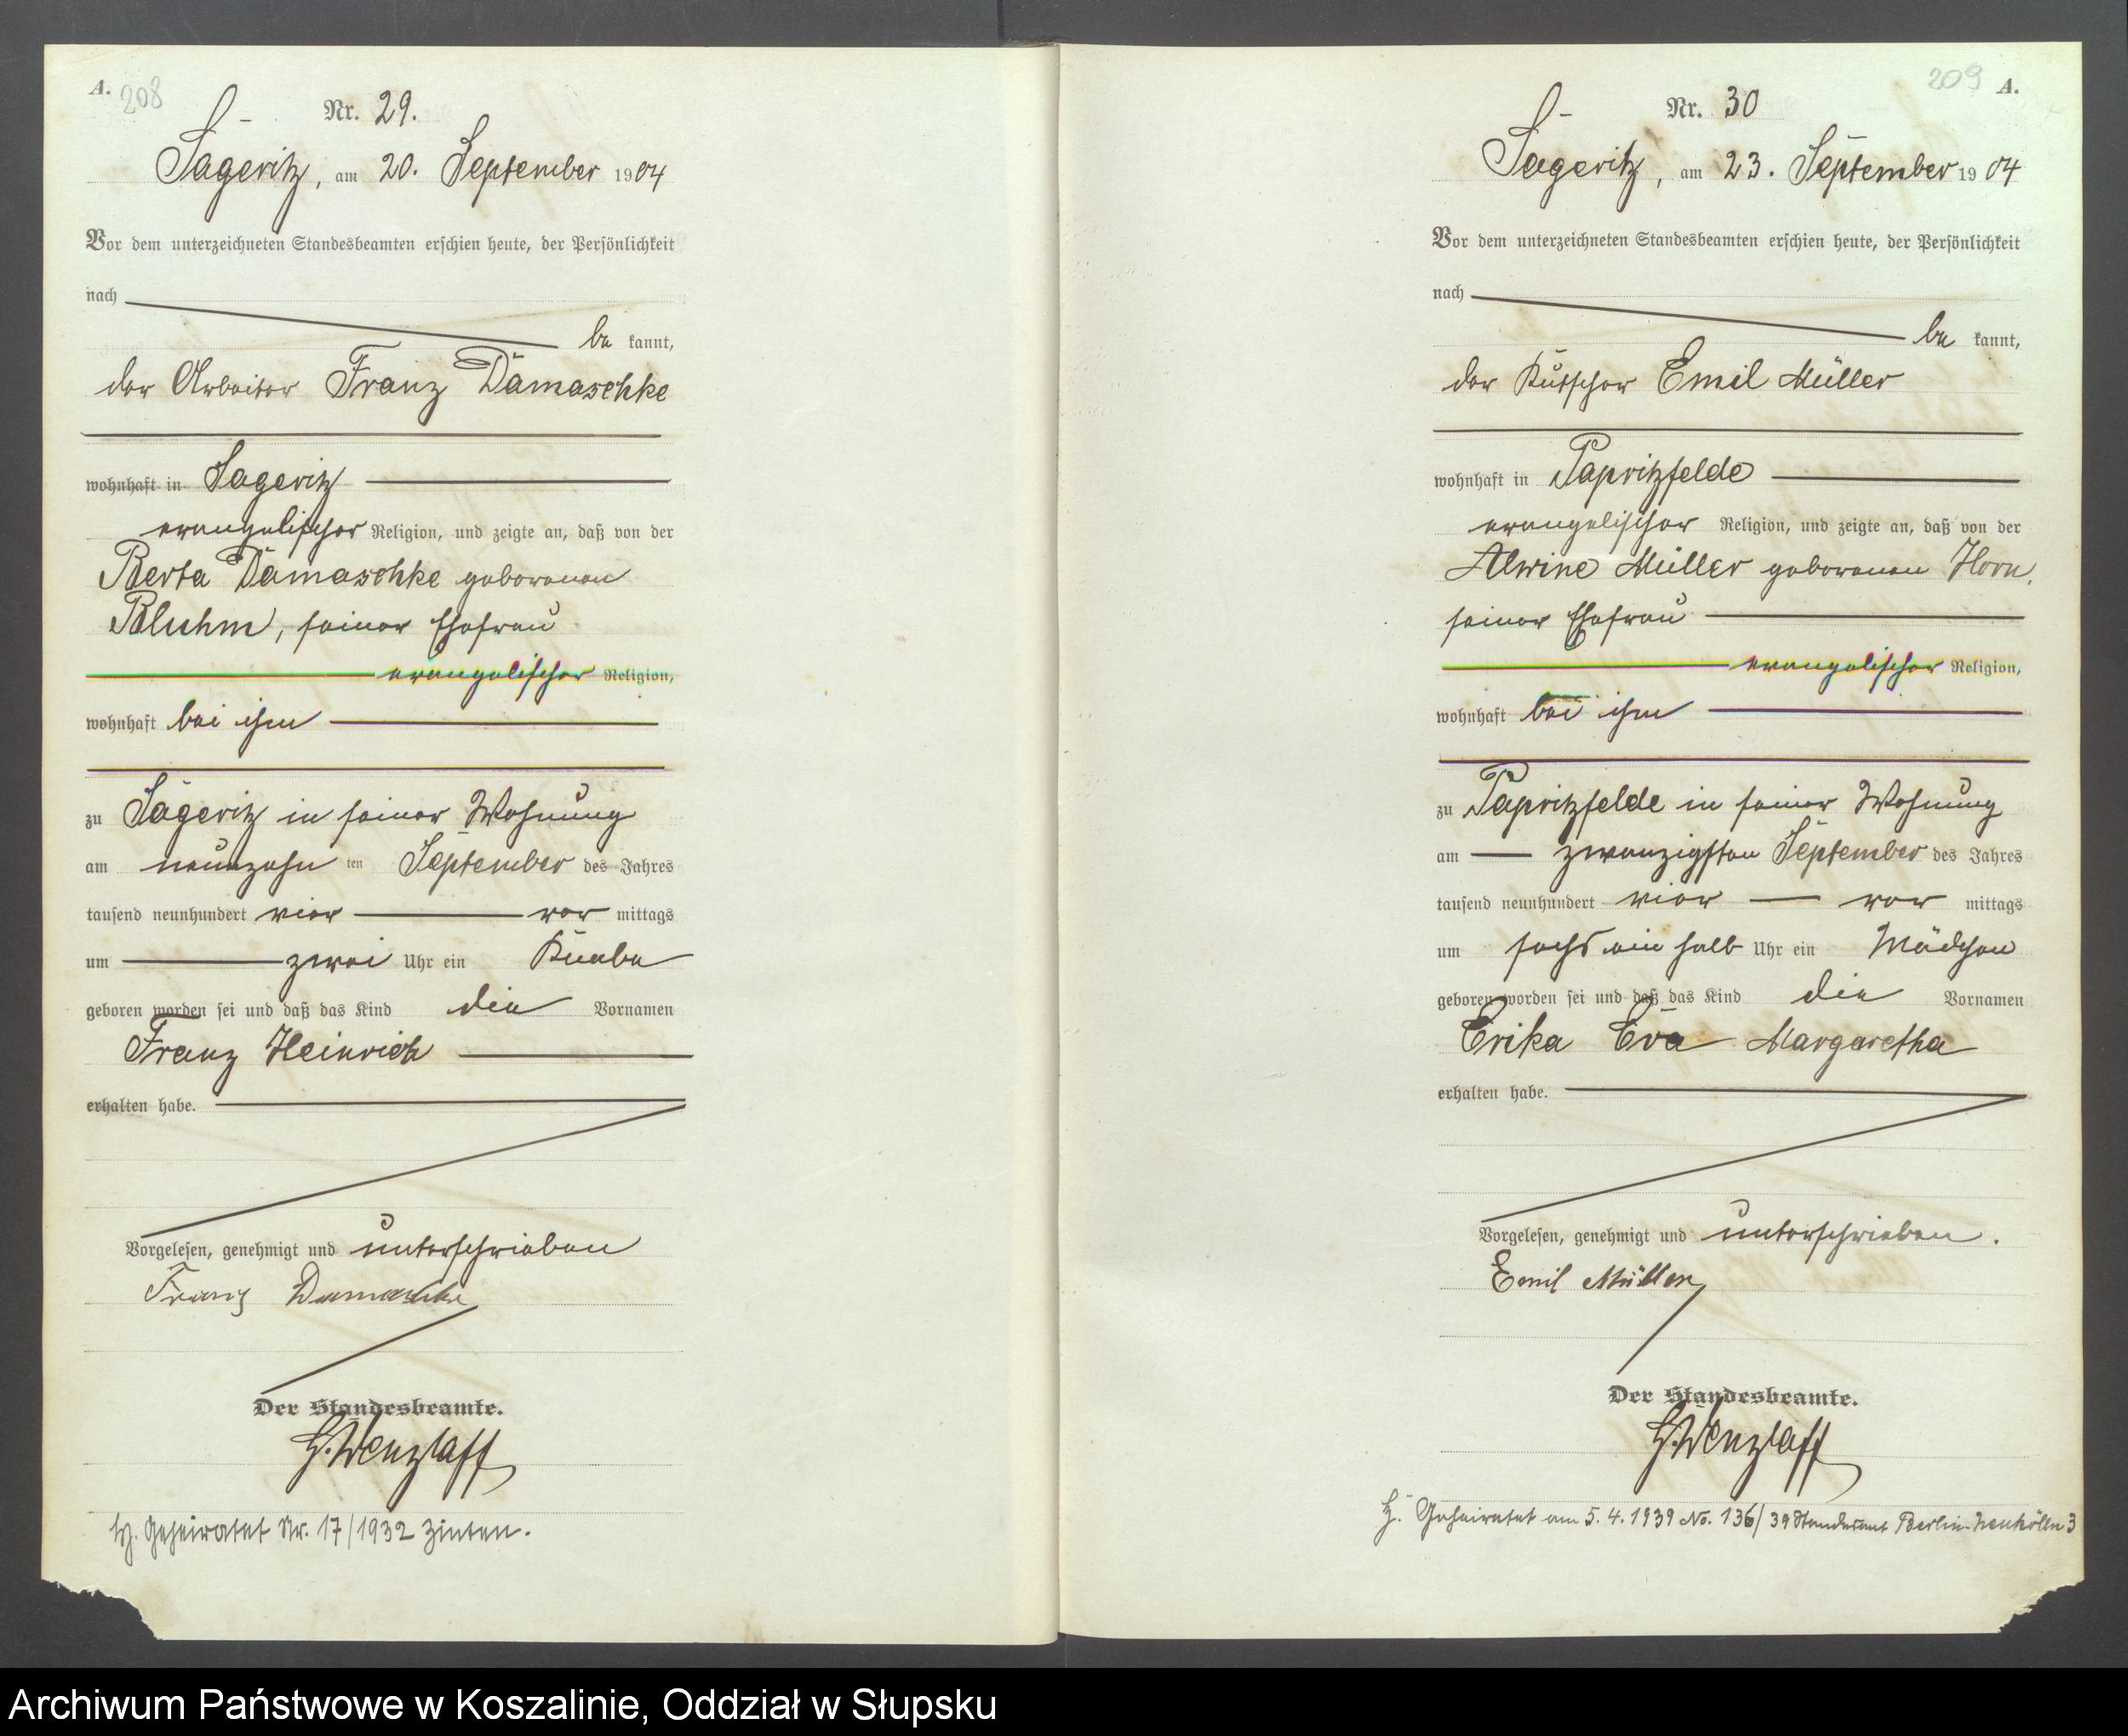 A.
208
Nr. 29.
Sageritz, am 20. September 1904
Vor dem unterzeichneten Standesbeamten erschien heute, der Persönlichkeit
nach
be kannt,
der Arbeiter Franz Damaschke
wohnhaft in Sageritz
evangelischer Religion, und zeigte an, daß von der
Berta Damaschke geborenen
Bluhm, seiner Ehefrau
evangelischer Religion,
wohnhaft bei ihm
zu Sageritz in seiner Wohnung
am neunzehn ten September des Jahres
tausend neunhundert vier vor mittags
um zwei Uhr ein Knabe
geboren worden sei und daß das Kind die Vornamen
Franz Heinrich
erhalten habe.
Vorgelesen, genehmigt und unterschrieben
Franz Damaschke
Der Standesbeamte.
H. Wenzlaff
H. Geheiratet Nr. 17/1932 Zinten.
209 A.
Nr. 30
Sageritz, am 23. September 1904
Vor dem unterzeichneten Standesbeamten erschien heute, der Persönlichkeit
nach
be kannt,
der Kutscher Emil Müller
wohnhaft in Papritzfelde
evangelischer Religion, und zeigte an, daß von der
Alwine Müller geborenen Horn,
seiner Ehefrau
evangelischer Religion,
wohnhaft bei ihm
zu Papritzfelde in seiner Wohnung
am zwanzigsten September des Jahres
tausend neunhundert vier vor mittags
um sechs ein halb Uhr ein Mädchen
geboren worden sei und daß das Kind die Vornamen
Erika Eva Margaretha
erhalten habe.
Vorgelesen, genehmigt und unterschrieben.
Emil Müller
Der Standesbeamte.
H. Wenzlaff
H. Geheiratet am 5. 4. 1939 No. 136/39 Standesamt Berlin-Neukölln 3
Archiwum Państwowe w Koszalinie, Oddział w Słupsku